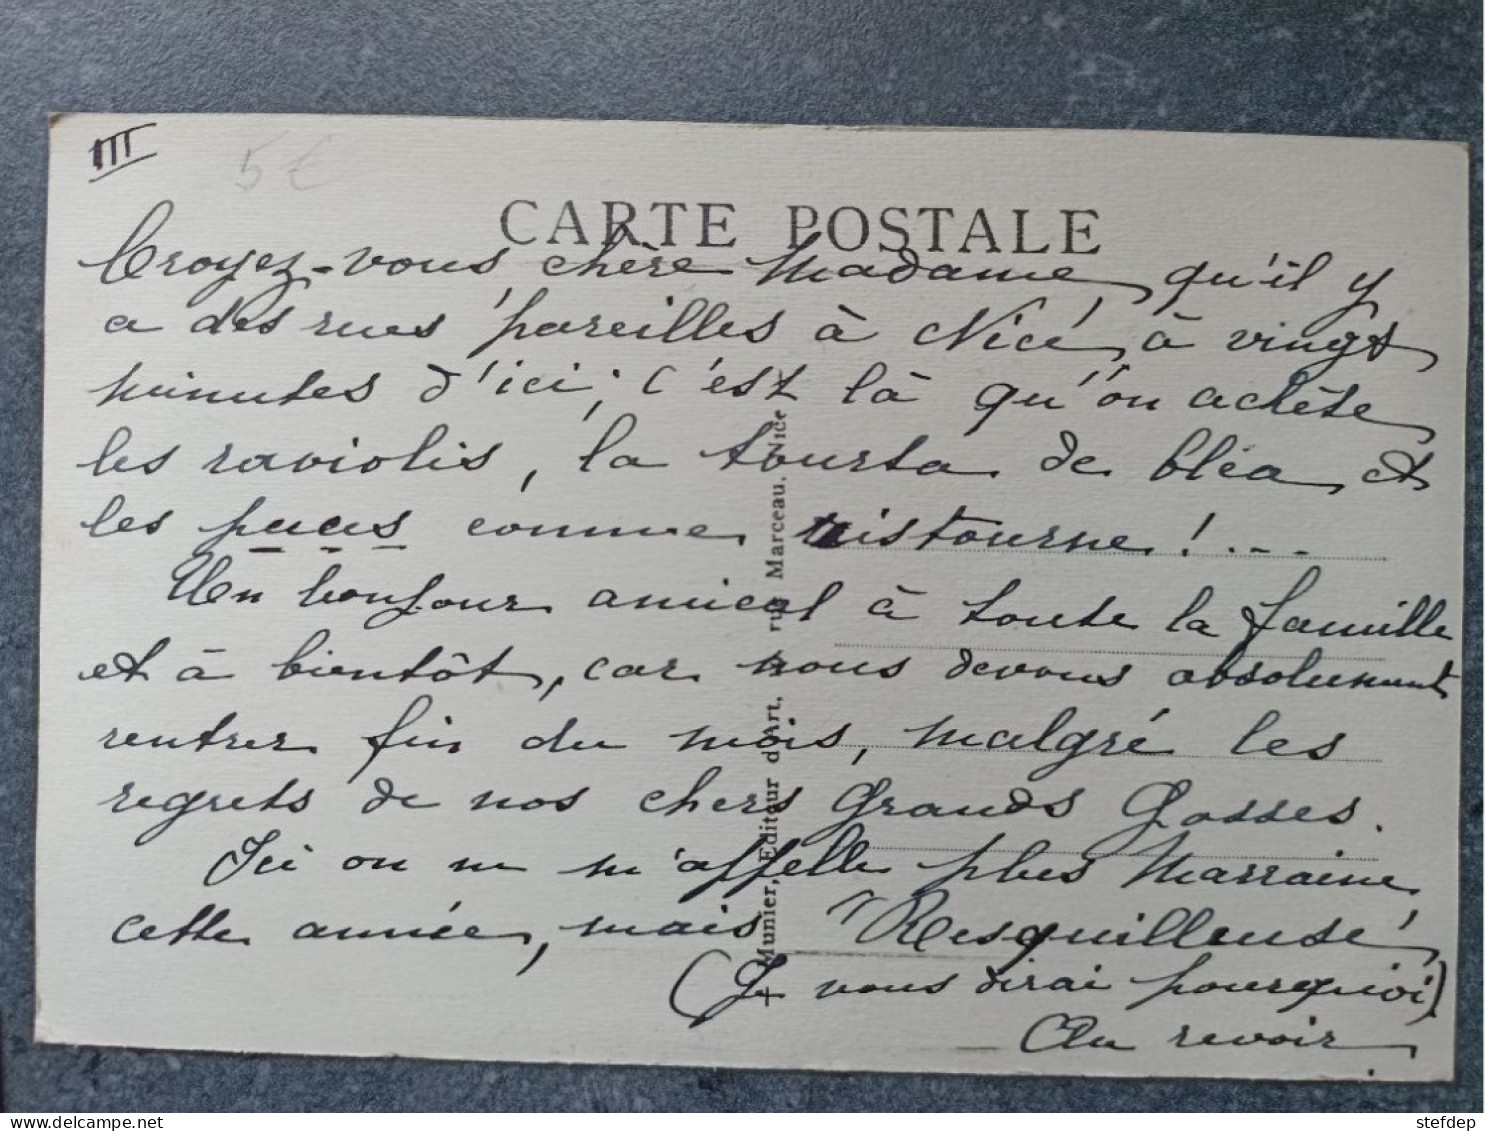 III
5€
CARTE POSTALE
Croyez-vous, chère Madame, qu'il y
a des rues pareilles à Nice, à vingt
minutes d'ici; c'est là qu'on achète
les raviolis, la tourta de bléa, et
les puces comme ristourne! ...
Un bonjour amical à toute la famille
et à bientôt, car nous devons absolument
rentrer fin du mois, malgré les
regrets de nos chers Grands Gosses.
Ici on ne m'appelle plus Marraine
cette année, mais "Resquilleuse"
(Je vous dirai pourquoi)
Au revoir.
Munier, Editeur d'Art, rue Marceau, Nice
stefdep